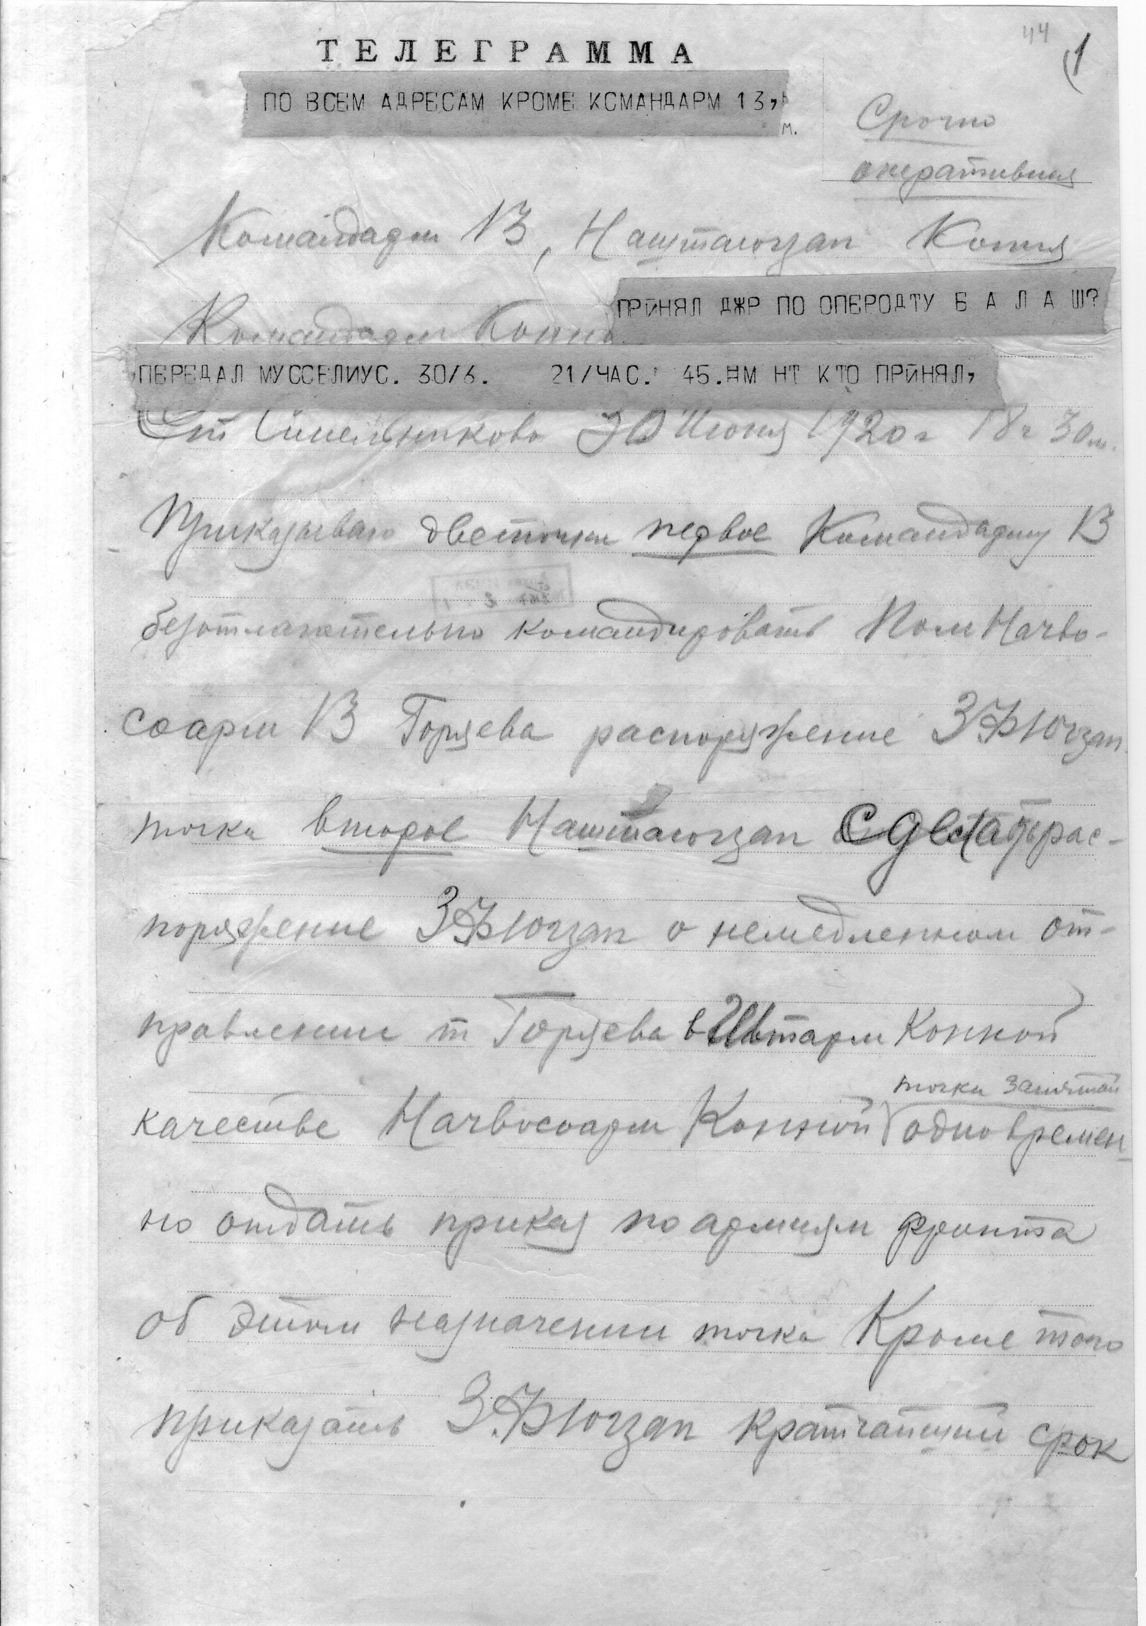 44 1
ТЕЛЕГРАММА
ПО ВСЕМ АДРЕСАМ КРОМЕ КСМАНДАРМ 13,
м.
Срочно
оперативная
Командарм 13, Наштаюгзап Копия
Командарм Конно
ПРИНЯЛ ДЖР ПО ОПЕРОДТУ Б А Л А Ш?
,ПЕРЕДАЛ МУССЕЛИУС. 30/6. 21/ЧАС. 45.НМ НТ КТО ПРИНЯЛ,
Ст Синельниково 30 Июня 1920 г 18 ч 30 м.
Приказываю дветочки первое Командарму 13
безотлагательно командировать Пом Начво-
соарм 13 Горяева распоряжение ЗФЮгзап
точка второе Наштаюгзап сделать рас-
поряжение ЗФЮгзап о немедленном от-
правлении т Горяева в Штарм Конной
точка запятая
качестве Начвосоарм Конной одновремен-
но отдать приказ по армиям фронта
об этом назначении точка Кроме того
приказать З.ФЮгзап кратчайший срок